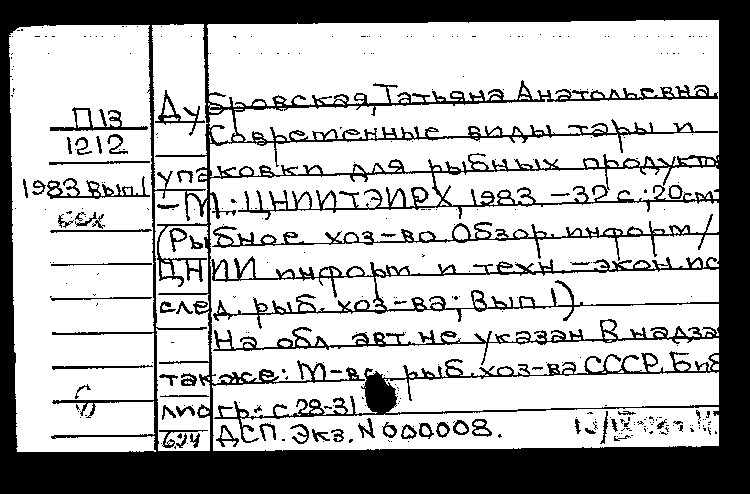 П13
1212
1983 вып.1
Дубровская, Татьяна Анатольевна.
Современные виды тары и
упаковки для рыбных продукто
-М.: ЦНИИТЭИРХ, 1983. -32 с.; 20см.
(Рыбное хоз-во. Обзор. информ /
ЦНИИ информ. и техн.-экон. ис
след. рыб. хоз-ва; Вып.1).
На обл. авт. не указан. В надза
также: М-во рыб. хоз-ва СССР. Биб
лиогр.: с.28-31
ДСП. Экз. N 000008.
6
624